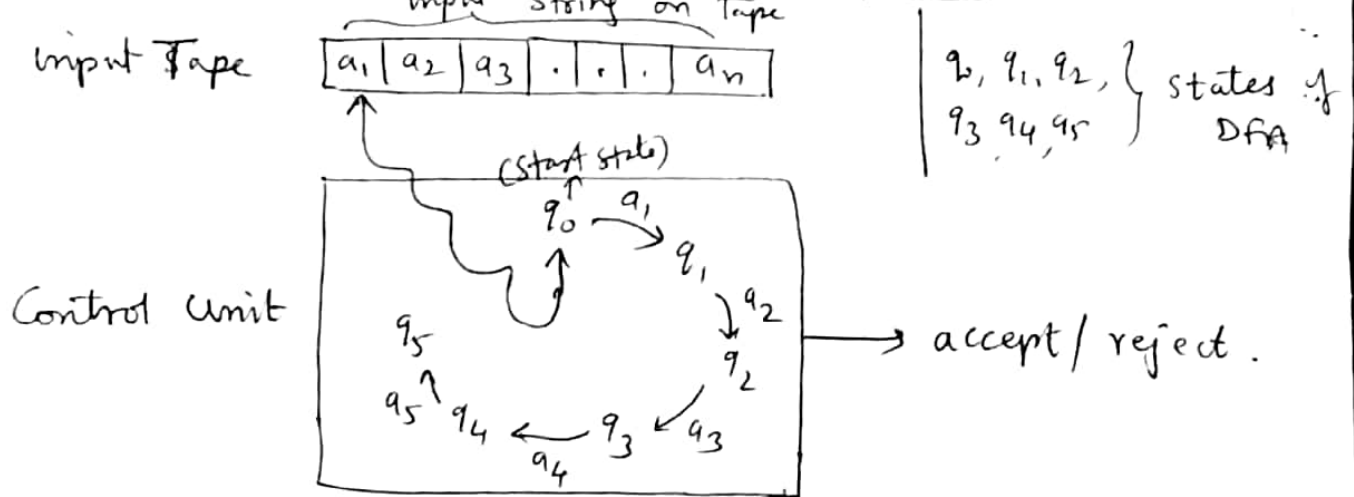 input string on Tape
input Tape
a1 a2 a3 . . . an
q0, q1, q2,
q3, q4, q5
states of
DFA
(start state)
q0
a1
q1
a2
q2
a3
q3
a4
q4
a5
q5
Control Unit
accept / reject.